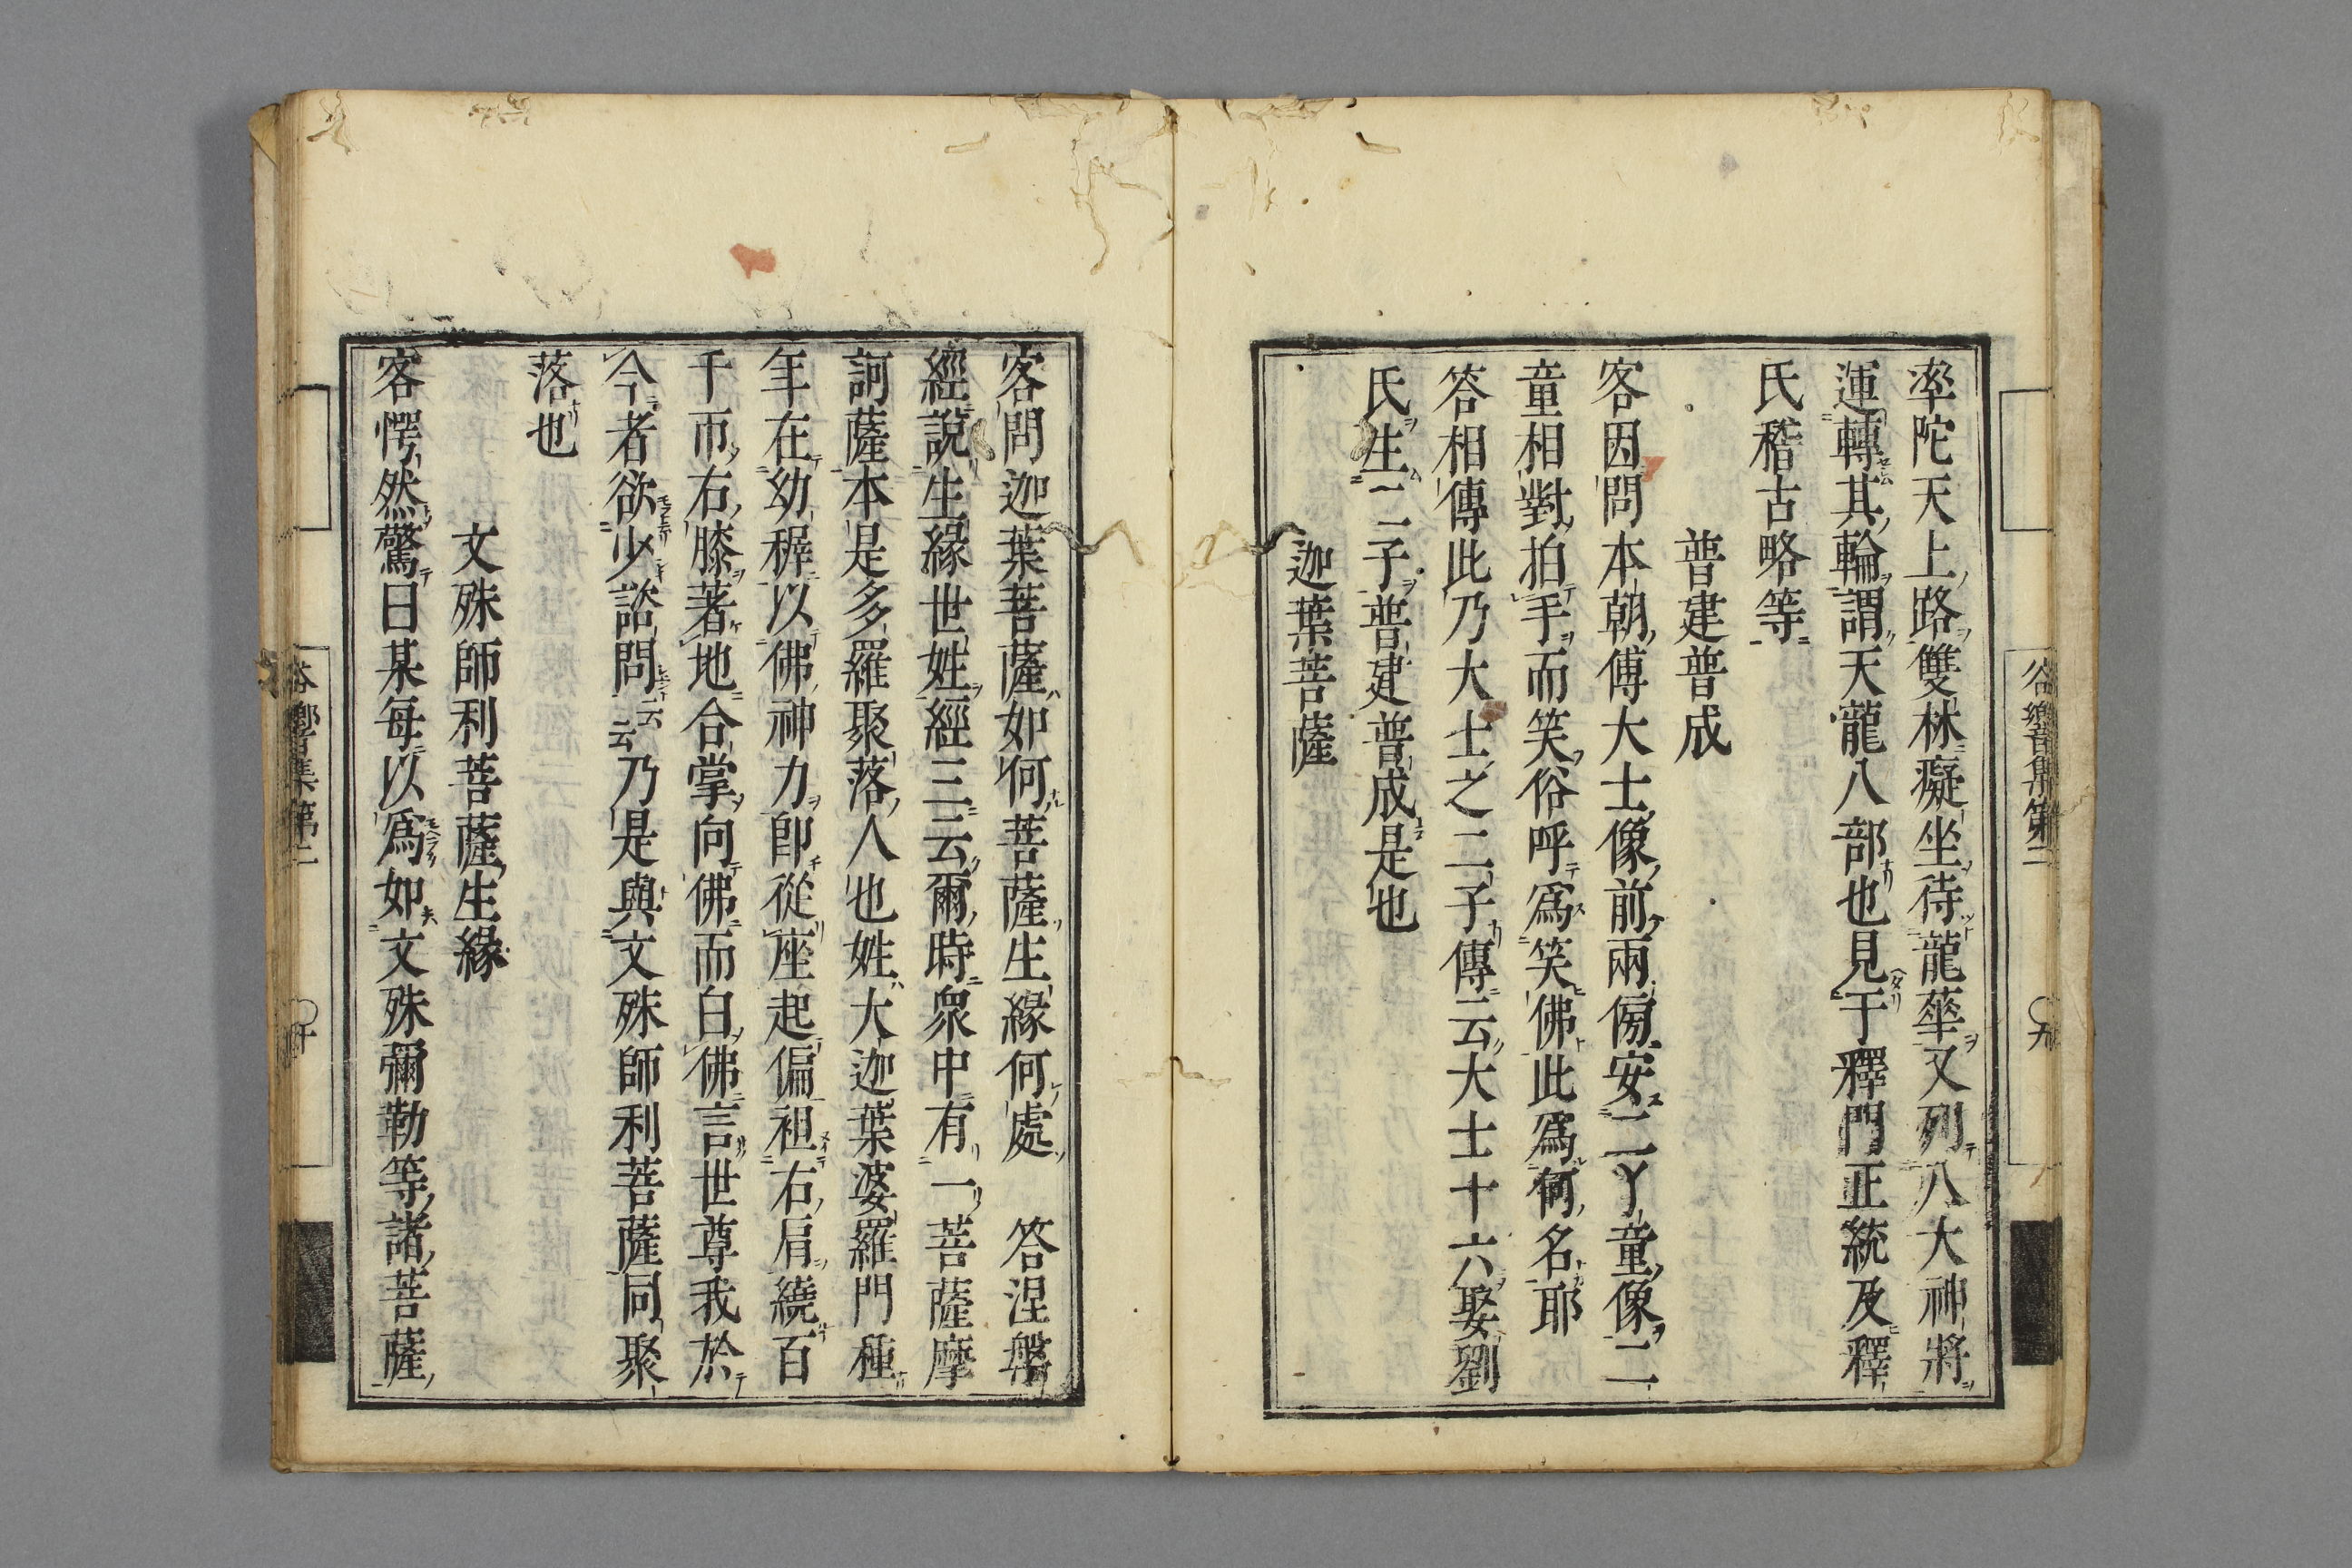 率陀天上路雙林癡坐待龍華又列八大神將
運轉其輪謂天龍八部也見于釋門正統及釋
氏稽古略等
普建普成
客因問本朝傅大士像前兩傍安二丫童像二
童相對拍手而笑俗呼爲笑佛此爲何名耶
答相傳此乃大士之二子傳云大士十六娶劉
氏生二子普建普成是也
迦葉菩薩
客問迦葉菩薩如何菩薩生緣何處　答涅槃
經說生緣世姓經三云爾時衆中有一菩薩摩
訶薩本是多羅聚落人也姓大迦葉婆羅門種
年在幼稺以佛神力卽從座起偏袒右肩繞百
千帀右膝著地合掌向佛而白佛言世尊我於
今者欲少諮問云云乃是與文殊師利菩薩同聚
落也
文殊師利菩薩生緣
客愕然驚曰某每以爲如文殊彌勒等諸菩薩
谷響集第二
〇九
谷響集第二
〇十